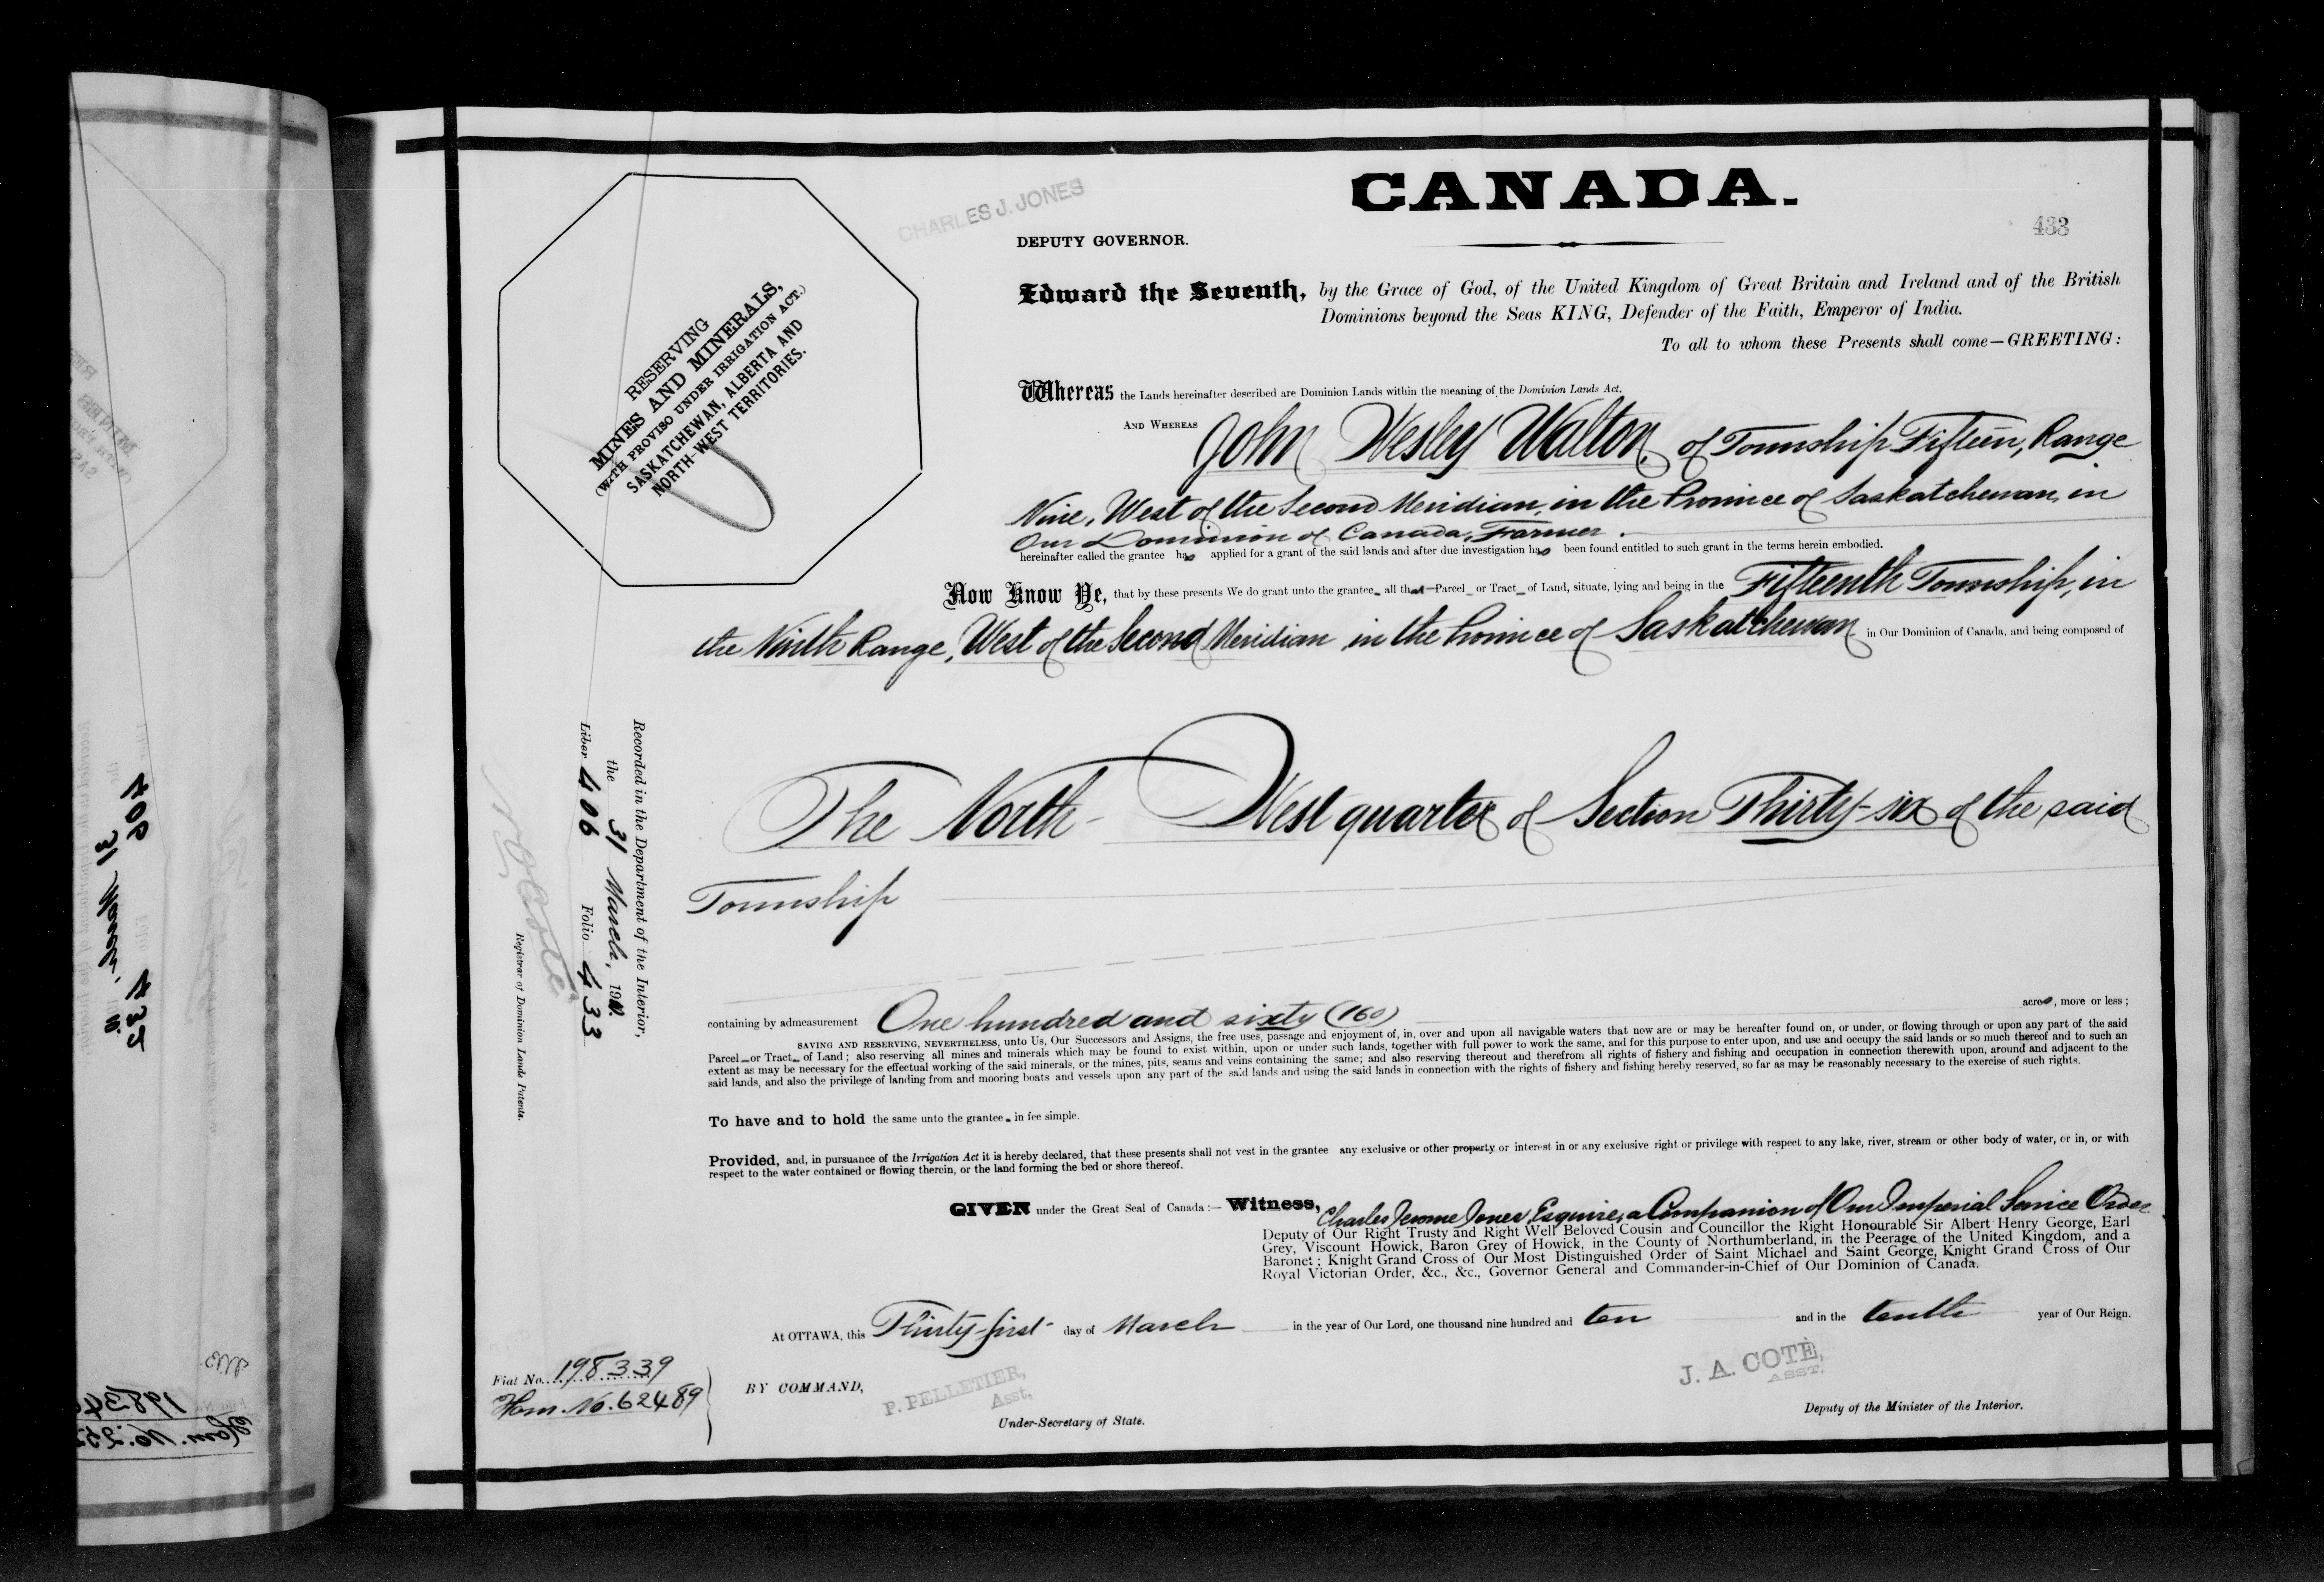 CANADA.
433
CHARLES J. JONES
DEPUTY GOVERNOR.
RESERVING
MINES AND MINERALS,
(WITH PROVISO UNDER IRRIGATION ACT.)
SASKATCHEWAN, ALBERTA AND
NORTH-WEST TERRITORIES.
Edward the Seventh, by the Grace of God, of the United Kingdom of Great Britain and Ireland and of the British
Dominions beyond the Seas KING, Defender of the Faith, Emperor of India.
To all to whom these Presents shall come—GREETING:
Whereas the Lands hereinafter described are Dominion Lands within the meaning of the Dominion Lands Act.
AND WHEREAS John Wesley Walton, of Township Fifteen, Range
Nine, West of the Second Meridian, in the Province of Saskatchewan, in
Our Dominion of Canada, Farmer.
hereinafter called the grantee has applied for a grant of the said lands and after due investigation has been found entitled to such grant in the terms herein embodied.
Now Know Ye, that by these presents We do grant unto the grantee all that Parcel or Tract of Land, situate, lying and being in the Fifteenth Township, in
the Ninth Range, West of the Second Meridian in the Province of Saskatchewan in Our Dominion of Canada, and being composed of
The North-West quarter of Section Thirty-six of the said
Township
containing by admeasurement One hundred and sixty (160) acres, more or less;
SAVING AND RESERVING, NEVERTHELESS, unto Us, Our Successors and Assigns, the free uses, passage and enjoyment of, in, over and upon all navigable waters that now are or may be hereafter found on, or under, or flowing through or upon any part of the said
Parcel or Tract of Land; also reserving all mines and minerals which may be found to exist within, upon or under such lands, together with full power to work the same, and for this purpose to enter upon, and use and occupy the said lands or so much thereof and to such an
extent as may be necessary for the effectual working of the said minerals, or the mines, pits, seams and veins containing the same; and also reserving thereout and therefrom all rights of fishery and fishing and occupation in connection therewith upon, around and adjacent to the
said lands, and also the privilege of landing from and mooring boats and vessels upon any part of the said lands and using the said lands in connection with the rights of fishery and fishing hereby reserved, so far as may be reasonably necessary to the exercise of such rights.
To have and to hold the same unto the grantee in fee simple.
Provided, and, in pursuance of the Irrigation Act it is hereby declared, that these presents shall not vest in the grantee any exclusive or other property or interest in or any exclusive right or privilege with respect to any lake, river, stream or other body of water, or in, or with
respect to the water contained or flowing therein, or the land forming the bed or shore thereof.
GIVEN under the Great Seal of Canada:— Witness, Charles Jerome Jones, Esquire, a Companion of Our Imperial Service Order
Deputy of Our Right Trusty and Right Well Beloved Cousin and Councillor the Right Honourable Sir Albert Henry George, Earl
Grey, Viscount Howick, Baron Grey of Howick, in the County of Northumberland, in the Peerage of the United Kingdom, and a
Baronet; Knight Grand Cross of Our Most Distinguished Order of Saint Michael and Saint George, Knight Grand Cross of Our
Royal Victorian Order, &c., &c., Governor General and Commander-in-Chief of Our Dominion of Canada.
At OTTAWA, this Thirty-first day of March in the year of Our Lord, one thousand nine hundred and ten and in the tenth year of Our Reign.
BY COMMAND,
P. PELLETIER,
Asst,
Under-Secretary of State.
J. A. COTÈ,
ASST.
Deputy of the Minister of the Interior.
Fiat No. 198339
Hom. No. 62489
Recorded in the Department of the Interior,
the 31 March, 1910.
Liber 406 Folio 433
N. O. Coté
Registrar of Dominion Lands Patents.